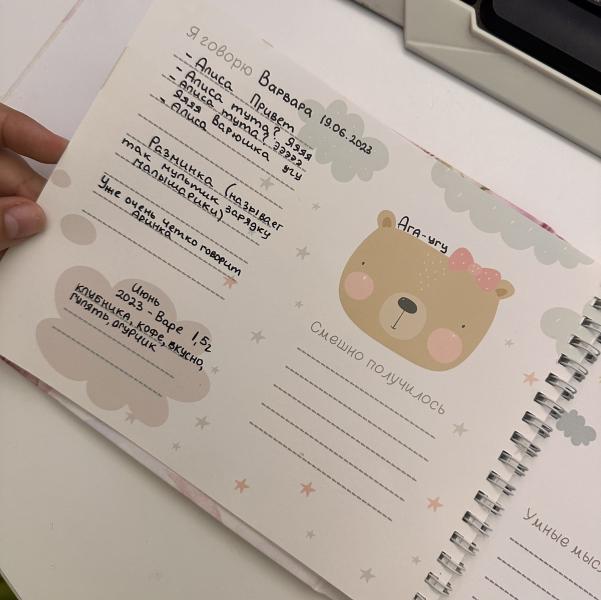 Я говорю Варвара 19.06.2023
- Алиса Привет
- Алиса тута? Яяяя
- Алиса тута? эээээ
Яяяя Варюшка угу
- Алиса
Разминка (называет
так мультик зарядку
малышарики)
Уже очень четко говорит
Аринка
Июнь
2023 - Варе 1,5г
клубника, кофе, вкусно,
гулять, огурчик
Ага-угу
Смешно получилось
Умные мыс